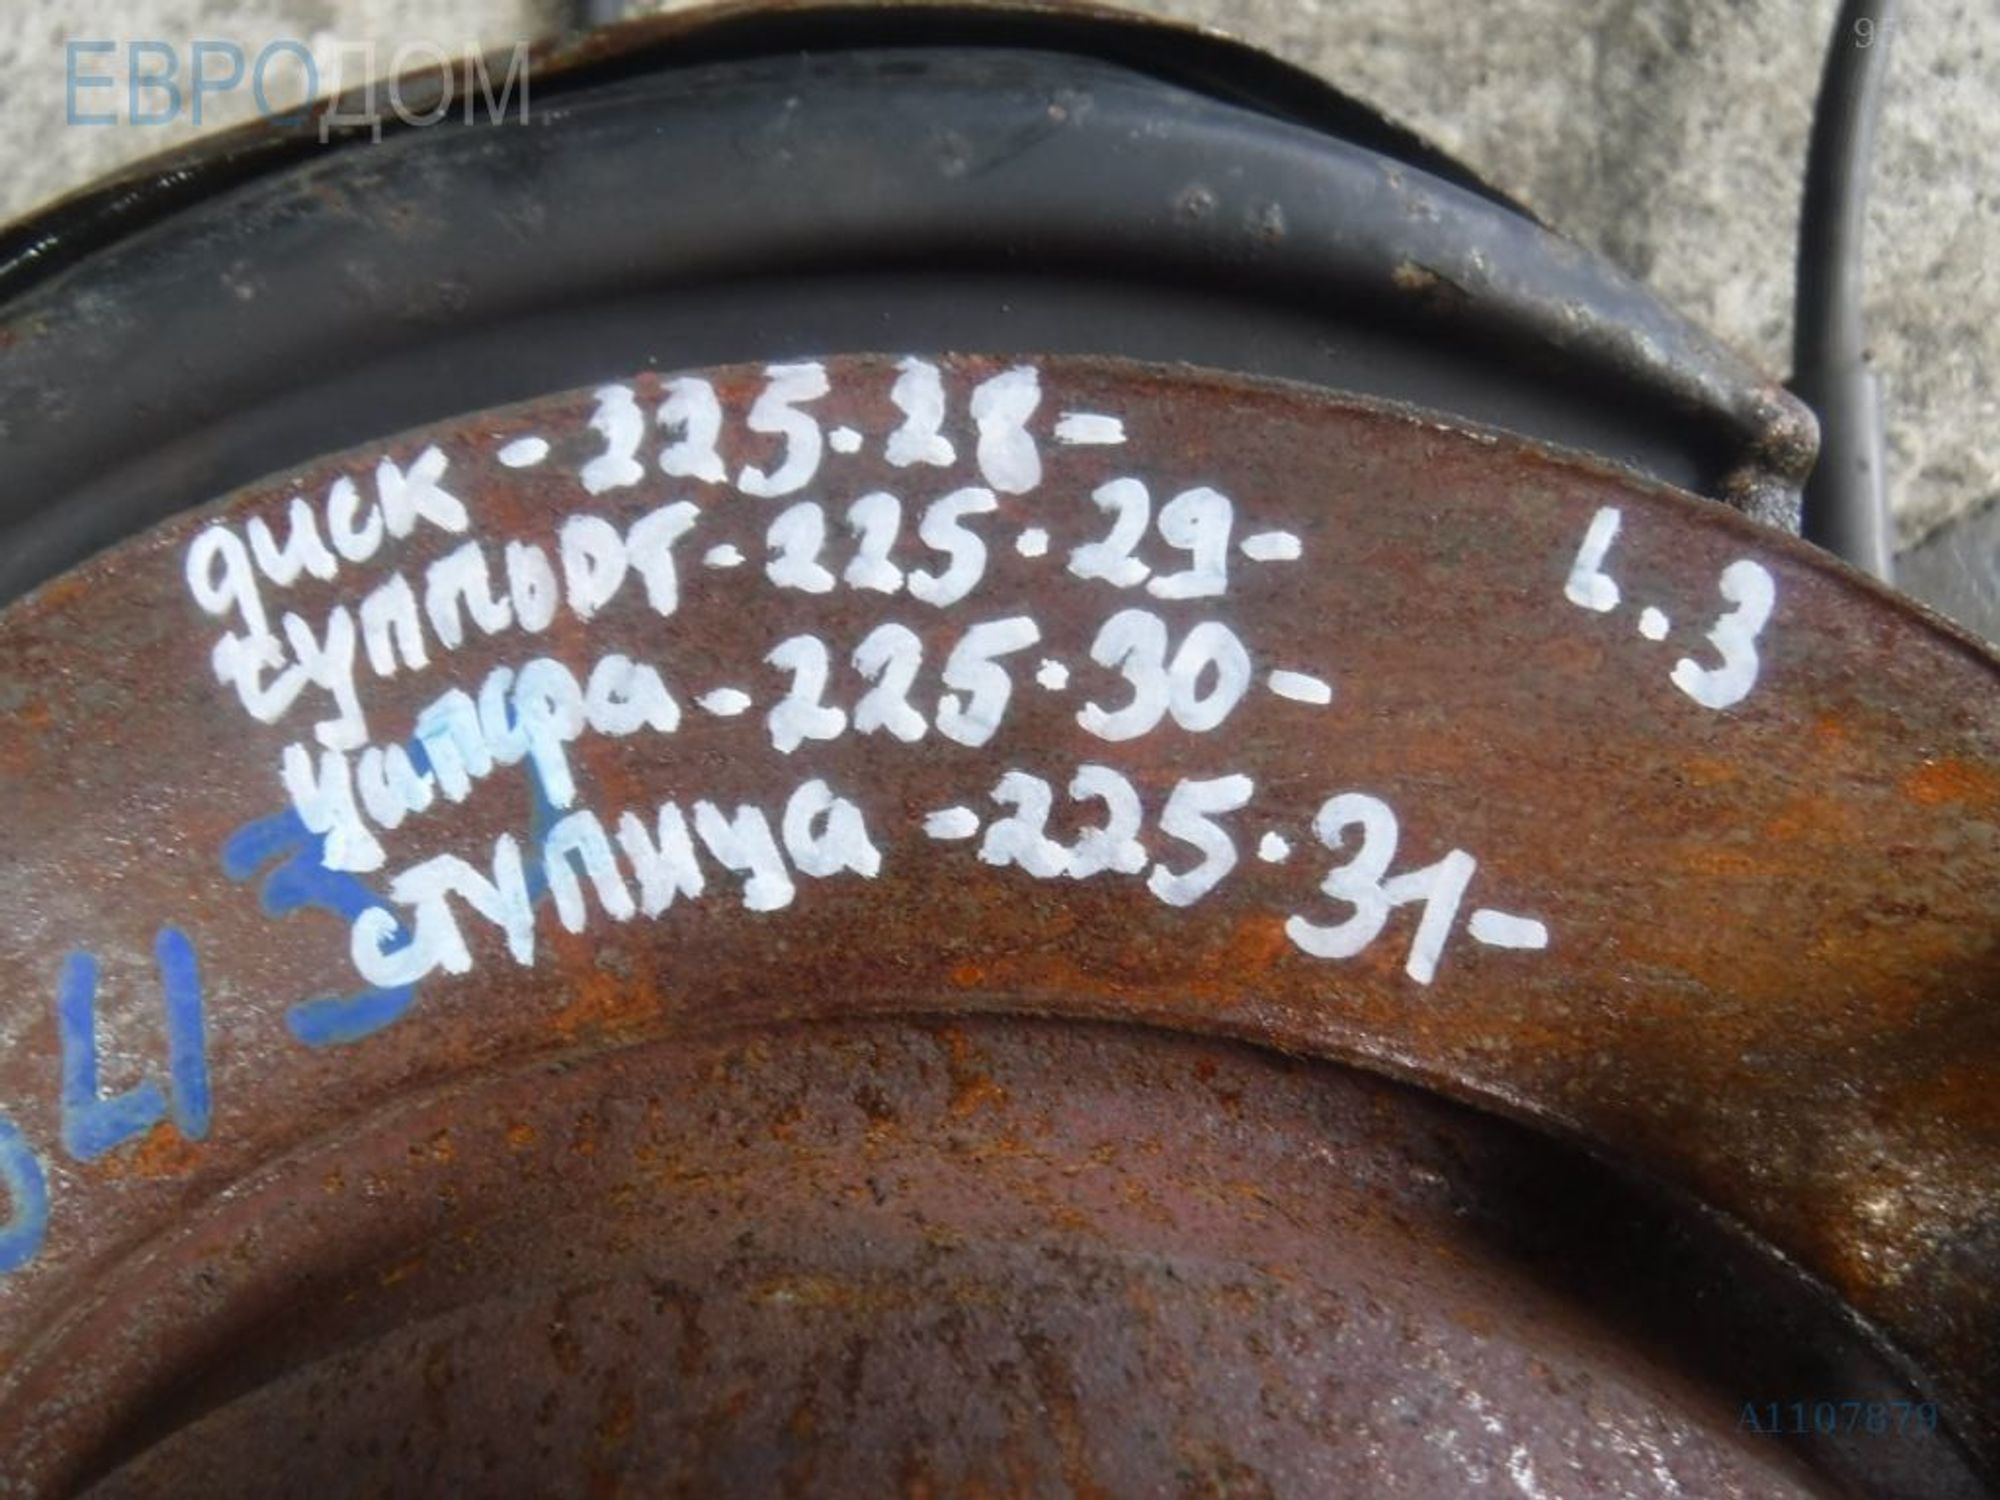 ЕВРОДОМ
диск - 225.28 -
суппорт - 225.29 -
цапфа - 225.30 -
ступица - 225.31 -
L.3
A1107879